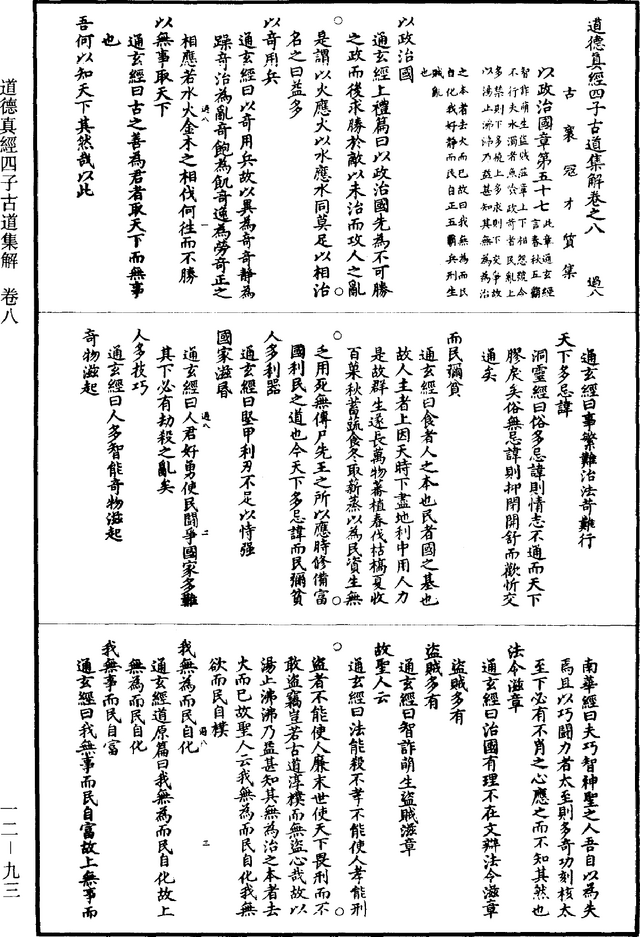 道德真經四子古道集解卷之八
古襄寇才質集 過八
以政治國章第五十七
以政治國
通玄經上禮篇曰以政治國先為不可勝
之政而後求勝於敵以未治而攻人之亂
是謂以火應火以水應水同莫足以相治
名之曰益多
以奇用兵
通玄經曰以奇用兵故以異為奇奇靜為
躁奇治為亂奇飽為飢奇逸為勞奇正之
相應若水火金木之相伐何往而不勝
以無事取天下
通玄經曰古之善為君者取天下而無事
也
吾何以知天下其然哉以此
通玄經曰事繁難治法苛難行
天下多忌諱
洞靈經曰俗多忌諱則情志不通而天下
膠戾矣俗無忌諱則抑閉開舒而歡忻交
通矣
而民彌貧
通玄經曰食者人之本也民者國之基也
故人主者上因天時下盡地利中用人力
是故群生遂長萬物蕃植春伐枯槁夏收
百菓秋蓄蔬食冬取薪蒸以為民資生無
乏用死無傳尸先王之所以應時修備富
國利民之道也今天下多忌諱而民彌貧
人多利器
通玄經曰堅甲利刃不足以恃强
國家滋昏
通玄經曰人君好勇使民鬭爭國家多難
其下必有劫殺之亂矣
人多技巧
通玄經曰人多智能奇物滋起
奇物滋起
南華經曰夫巧智神聖之人吾自以為失
焉且以巧鬭力者太至則多奇功刻核太
至下必有不肖之心應之而不知其然也
法令滋章
通玄經曰治國有理不在文辯法令滋章
盜賊多有
盜賊多有
通玄經曰智詐萌生盜賊滋章
故聖人云
通玄經曰法能殺不孝不能使人孝能刑
盜者不能使人廉末世使天下畏刑而不
敢盜竊豈若古道淳樸而無盜心哉故以
湯止沸沸乃益甚知其無為治之本者去
火而已故聖人云我無為而民自化我無
欲而民自樸
我無為而民自化
通玄經道原篇曰我無為而民自化故上
無為而民自化
我無事而民自富
通玄經曰我無事而民自富故上無事而
道德真經四子古道集解 卷八
一二－九三